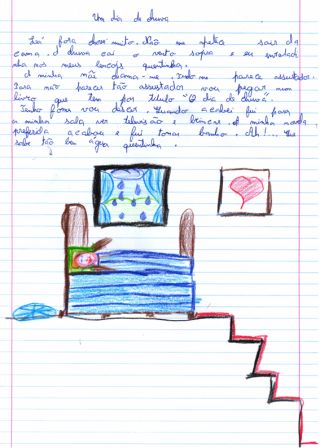 Um dia de chuva
Lá fora chove muito. Não me apetece sair da
cama. A chuva cai o vento sopra e eu enrolad
nha nos meus lençois quentinha.
A minha mãe chama-me. Tudo me parece assustador.
Para não parecer tão assustador vou pegar num
livro que tem por título "O dia de chuva.
Tenho fome vou descer. Quando acabei fui para
a minha sala ver televisão e brincar. A minha novela
preferida acabou e fui tomar banho. Ah!... Que
sabe tão bem água quentinha.